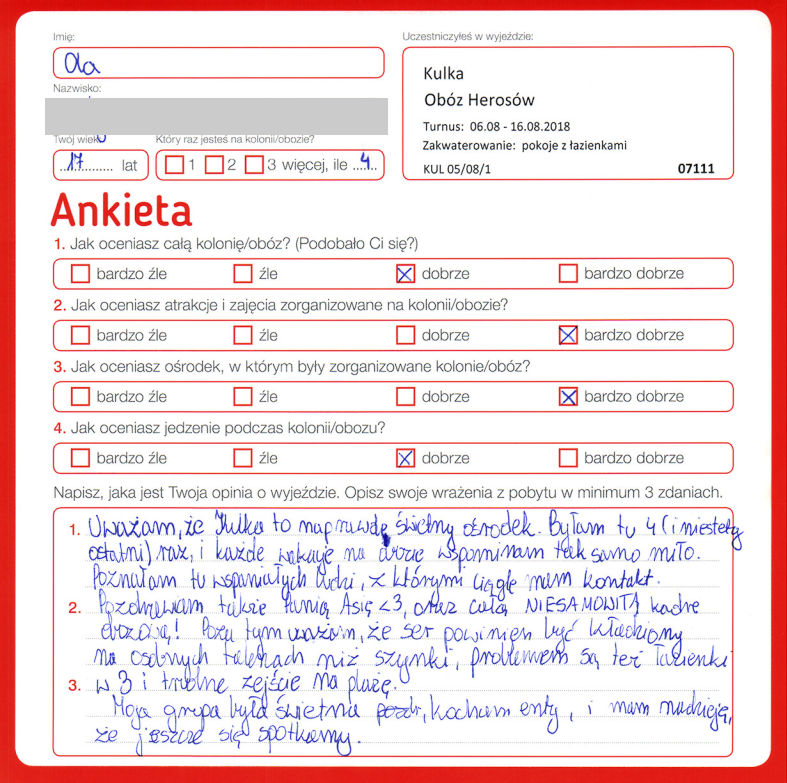 Imię:
Ola
Nazwisko:
Twój wiek
Który raz jesteś na kolonii/obozie?
17 lat
1 2 3 więcej, ile 4
Uczestniczyłeś w wyjeździe:
Kulka
Obóz Herosów
Turnus: 06.08 - 16.08.2018
Zakwaterowanie: pokoje z łazienkami
KUL 05/08/1 07111
Ankieta
1. Jak oceniasz całą kolonię/obóz? (Podobało Ci się?)
bardzo źle źle dobrze bardzo dobrze
2. Jak oceniasz atrakcje i zajęcia zorganizowane na kolonii/obozie?
bardzo źle źle dobrze bardzo dobrze
3. Jak oceniasz ośrodek, w którym były zorganizowane kolonie/obóz?
bardzo źle źle dobrze bardzo dobrze
4. Jak oceniasz jedzenie podczas kolonii/obozu?
bardzo źle źle dobrze bardzo dobrze
Napisz, jaka jest Twoja opinia o wyjeździe. Opisz swoje wrażenia z pobytu w minimum 3 zdaniach.
1. Uważam, że Kulka to naprawdę świetny ośrodek. Byłam tu 4 (i niestety
ostatni) raz, i każde wakacje na obozie wspominam tak samo miło.
Poznałam tu wspaniałych ludzi, z którymi ciągle mam kontakt.
2. Pozdrawiam także Panią Asię <3, oraz całą NIESAMOWITĄ kadrę
obozową! Poza tym uważam, że ser powinien być kładziony
na osobnych talerzach niż szynki, problemem są też łazienki
3. w 3 i trudne zejście na plażę.
Moja grupa była świetna pozdr, kocham enty, i mam nadzieję,
że jeszcze się spotkamy.